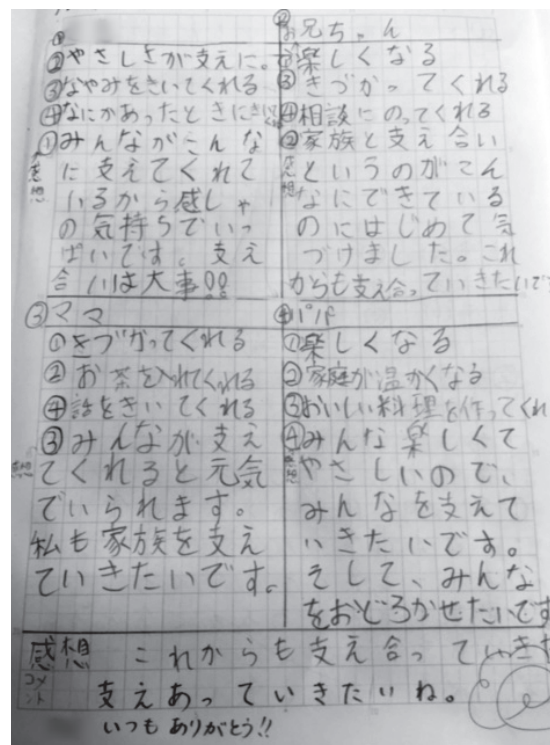 ①
②やさしさが支えに。
③なやみをきいてくれる
④なにかあったときにきいてくれる
①みんながこんな
感想
に支えてくれて
いるから感しゃ
の気持ちでいっ
ぱいです。支え
合いは大事!!
②お兄ちゃん
①楽しくなる
③きづかってくれる
④相談にのってくれる
②家族と支え合い
感想
というのがこん
なにできている
のにはじめて気
づけました。これ
からも支え合っていきたいで
③ママ
①きづかってくれる
②お茶を入れてくれる
④話をきいてくれる
③みんなが支え
感想
てくれると元気
でいられます。
私も家族を支え
ていきたいです。
④パパ
①楽しくなる
②家庭が温かくなる
③おいしい料理を作ってくれ
④みんな楽しくて
感想
やさしいので、
みんなを支えて
いきたいです。
そして、みんな
をおどろかせたいです
感想 これからも支え合っていきた
コメント
支えあっていきたいね。
いつもありがとう!!